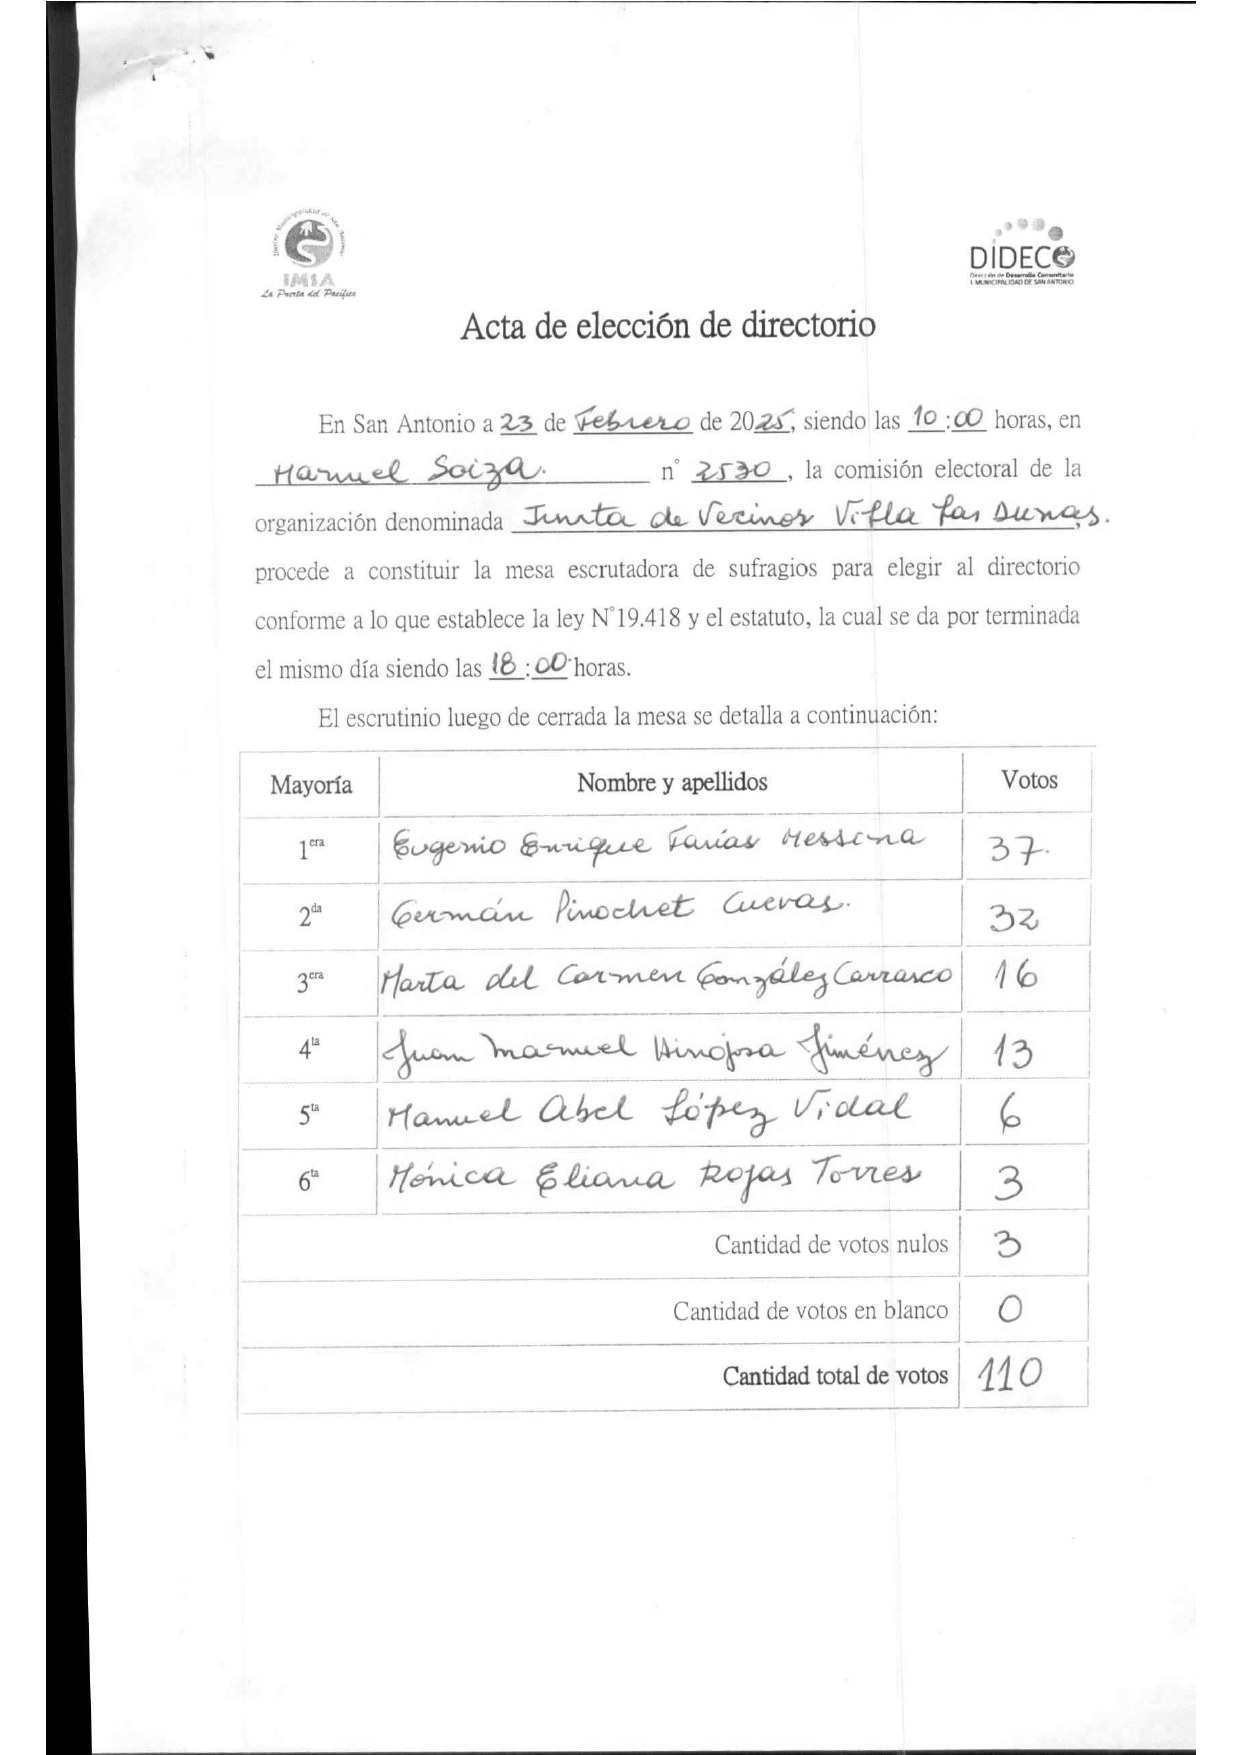 Ilustre Municipalidad de San Antonio
IMSA
La Puerta del Pacífico
DIDECO
Dirección de Desarrollo Comunitario
I. MUNICIPALIDAD DE SAN ANTONIO
Acta de elección de directorio
En San Antonio a 23 de Febrero de 2025, siendo las 10:00 horas, en
Manuel Soiza. n° 2530, la comisión electoral de la
organización denominada Junta de Vecinos Villa Las Dunas.
procede a constituir la mesa escrutadora de sufragios para elegir al directorio
conforme a lo que establece la ley N°19.418 y el estatuto, la cual se da por terminada
el mismo día siendo las 18:00 horas.
El escrutinio luego de cerrada la mesa se detalla a continuación:
Mayoría Nombre y apellidos Votos
1era Eugenio Enrique Farías Messina 37.
2da Germán Pinochet Cuevas. 32
3era Marta del Carmen González Carrasco 16
4ta Juan Manuel Hinojosa Jiménez 13
5ta Manuel Abel López Vidal 6
6ta Mónica Eliana Rojas Torres 3
Cantidad de votos nulos 3
Cantidad de votos en blanco 0
Cantidad total de votos 110